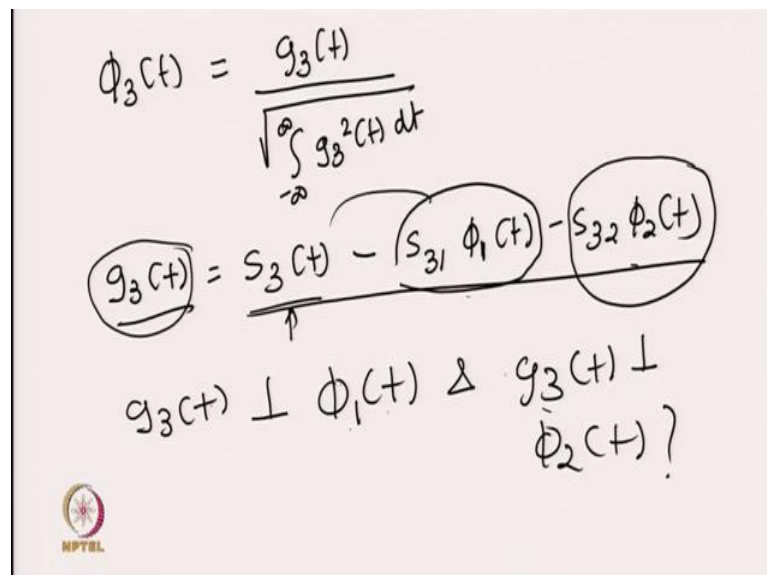 ϕ₃(t) = g₃(t) / √(∫_{-∞}^{∞} g₃²(t) dt)
g₃(t) = s₃(t) − s₃₁ ϕ₁(t) − s₃₂ ϕ₂(t)
g₃(t) ⊥ ϕ₁(t) & g₃(t) ⊥
ϕ₂(t)?
NPTEL